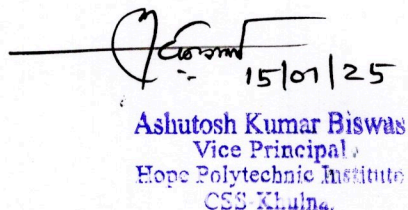 15/01/25
Ashutosh Kumar Biswas
Vice Principal.
Hope Polytechnic Institute
CSS-Khulna.